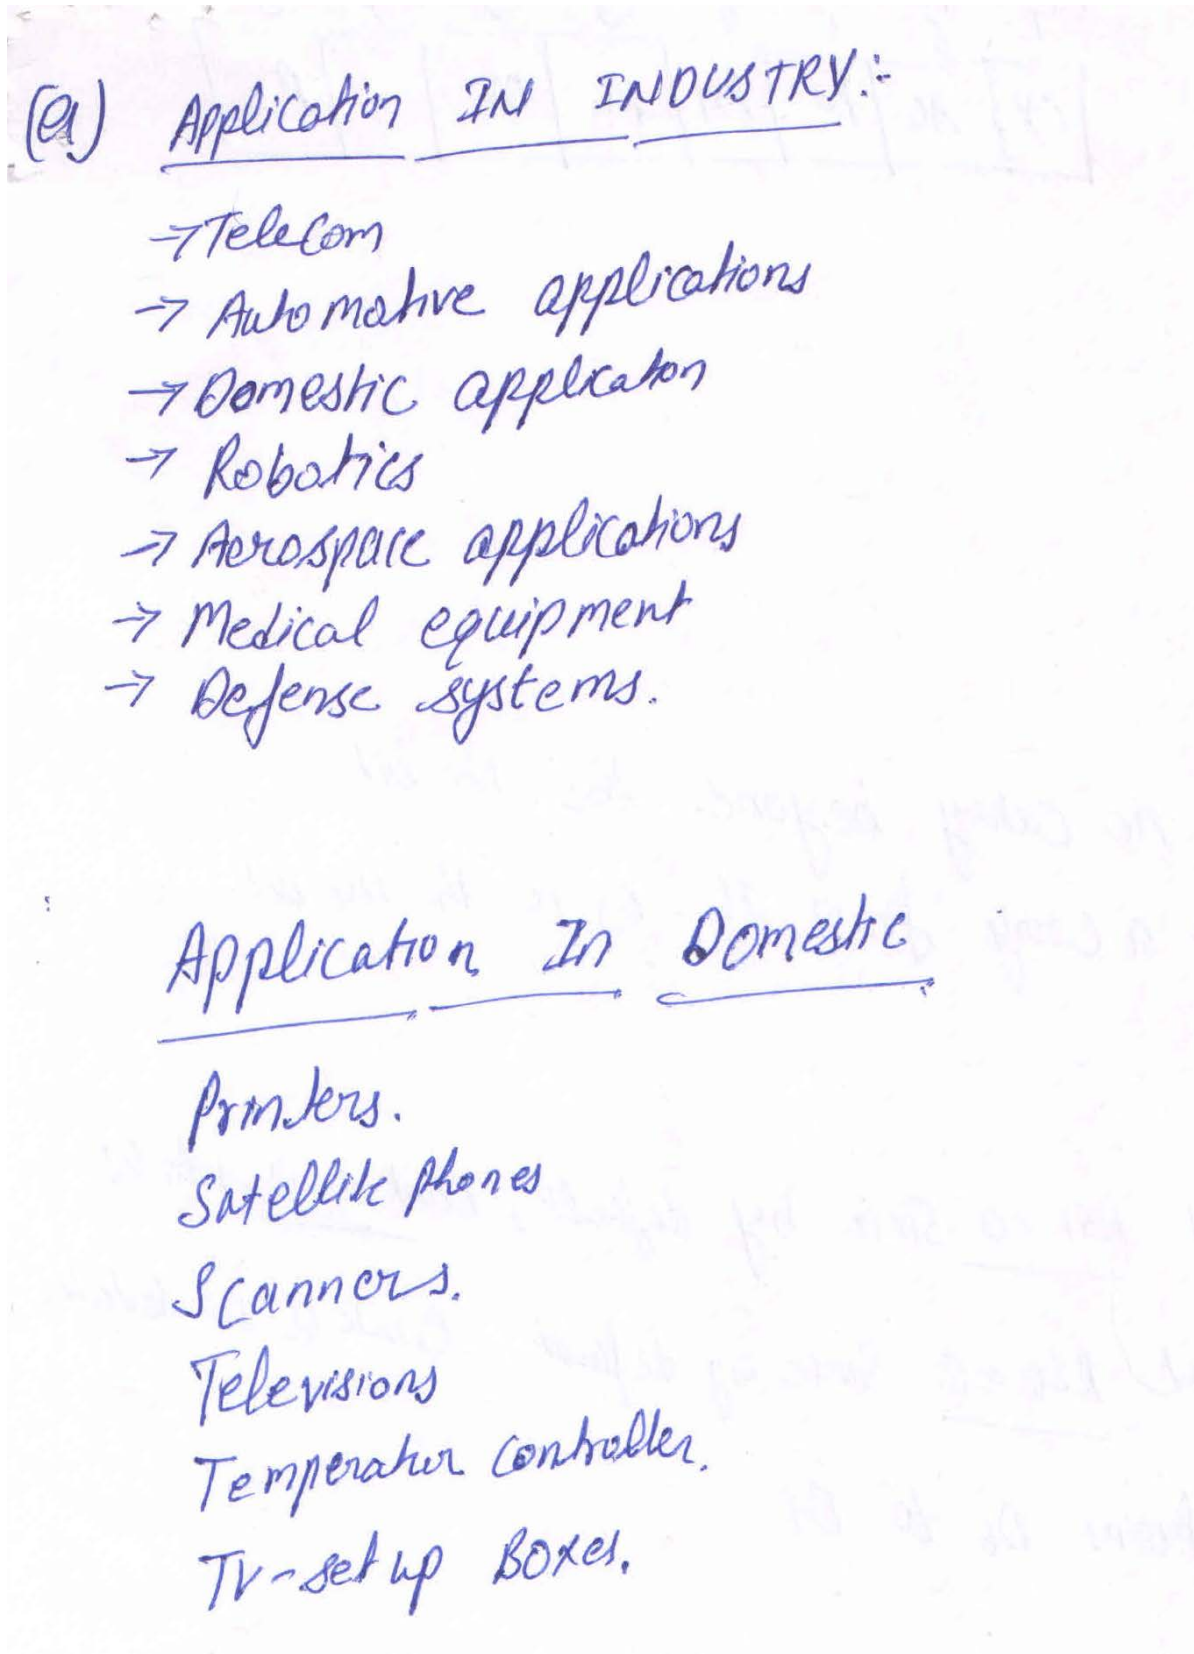 (a) Application IN INDUSTRY:-
→ Telecom
→ Automotive applications
→ Domestic application
→ Robotics
→ Aerospace applications
→ Medical equipment
→ Defense systems.
Application In Domestic
Printers.
Satellite phones
Scanners.
Televisions
Temperatur controller.
TV-set up Boxes.